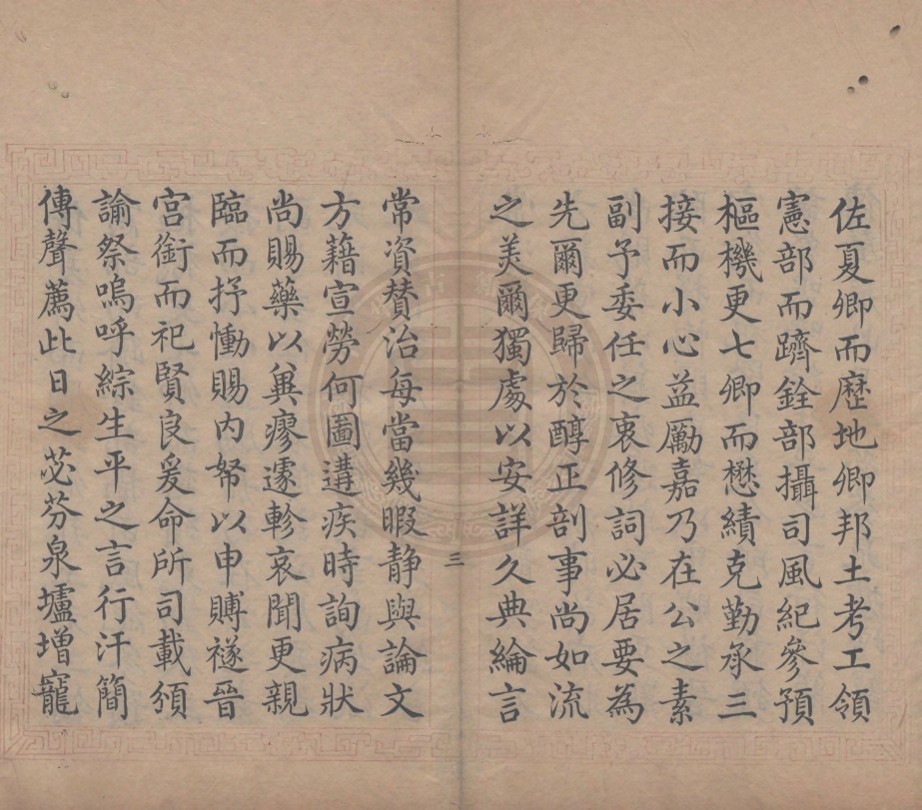 佐夏卿而歷地卿邦土考工領
憲部而躋銓部攝司風紀參預
樞機更七卿而懋績克勤承三
接而小心益勵嘉乃在公之素
副予委任之衷修詞必居要為
先爾更歸於醇正剖事尚如流
之美爾獨處以安詳久典綸言
三
常資賛治每當幾暇静與論文
方藉宣勞何圖遘疾時詢病狀
尚賜藥以兾瘳遽軫哀聞更親
臨而抒慟賜内帑以申賻禭晉
宮銜而祀賢良爰命所司載頒
諭祭嗚呼綜生平之言行汗簡
傳聲薦此日之苾芬泉壚增寵